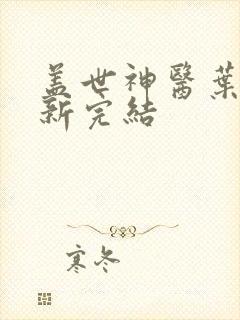 盖世神醫葉
新完結
寒冬